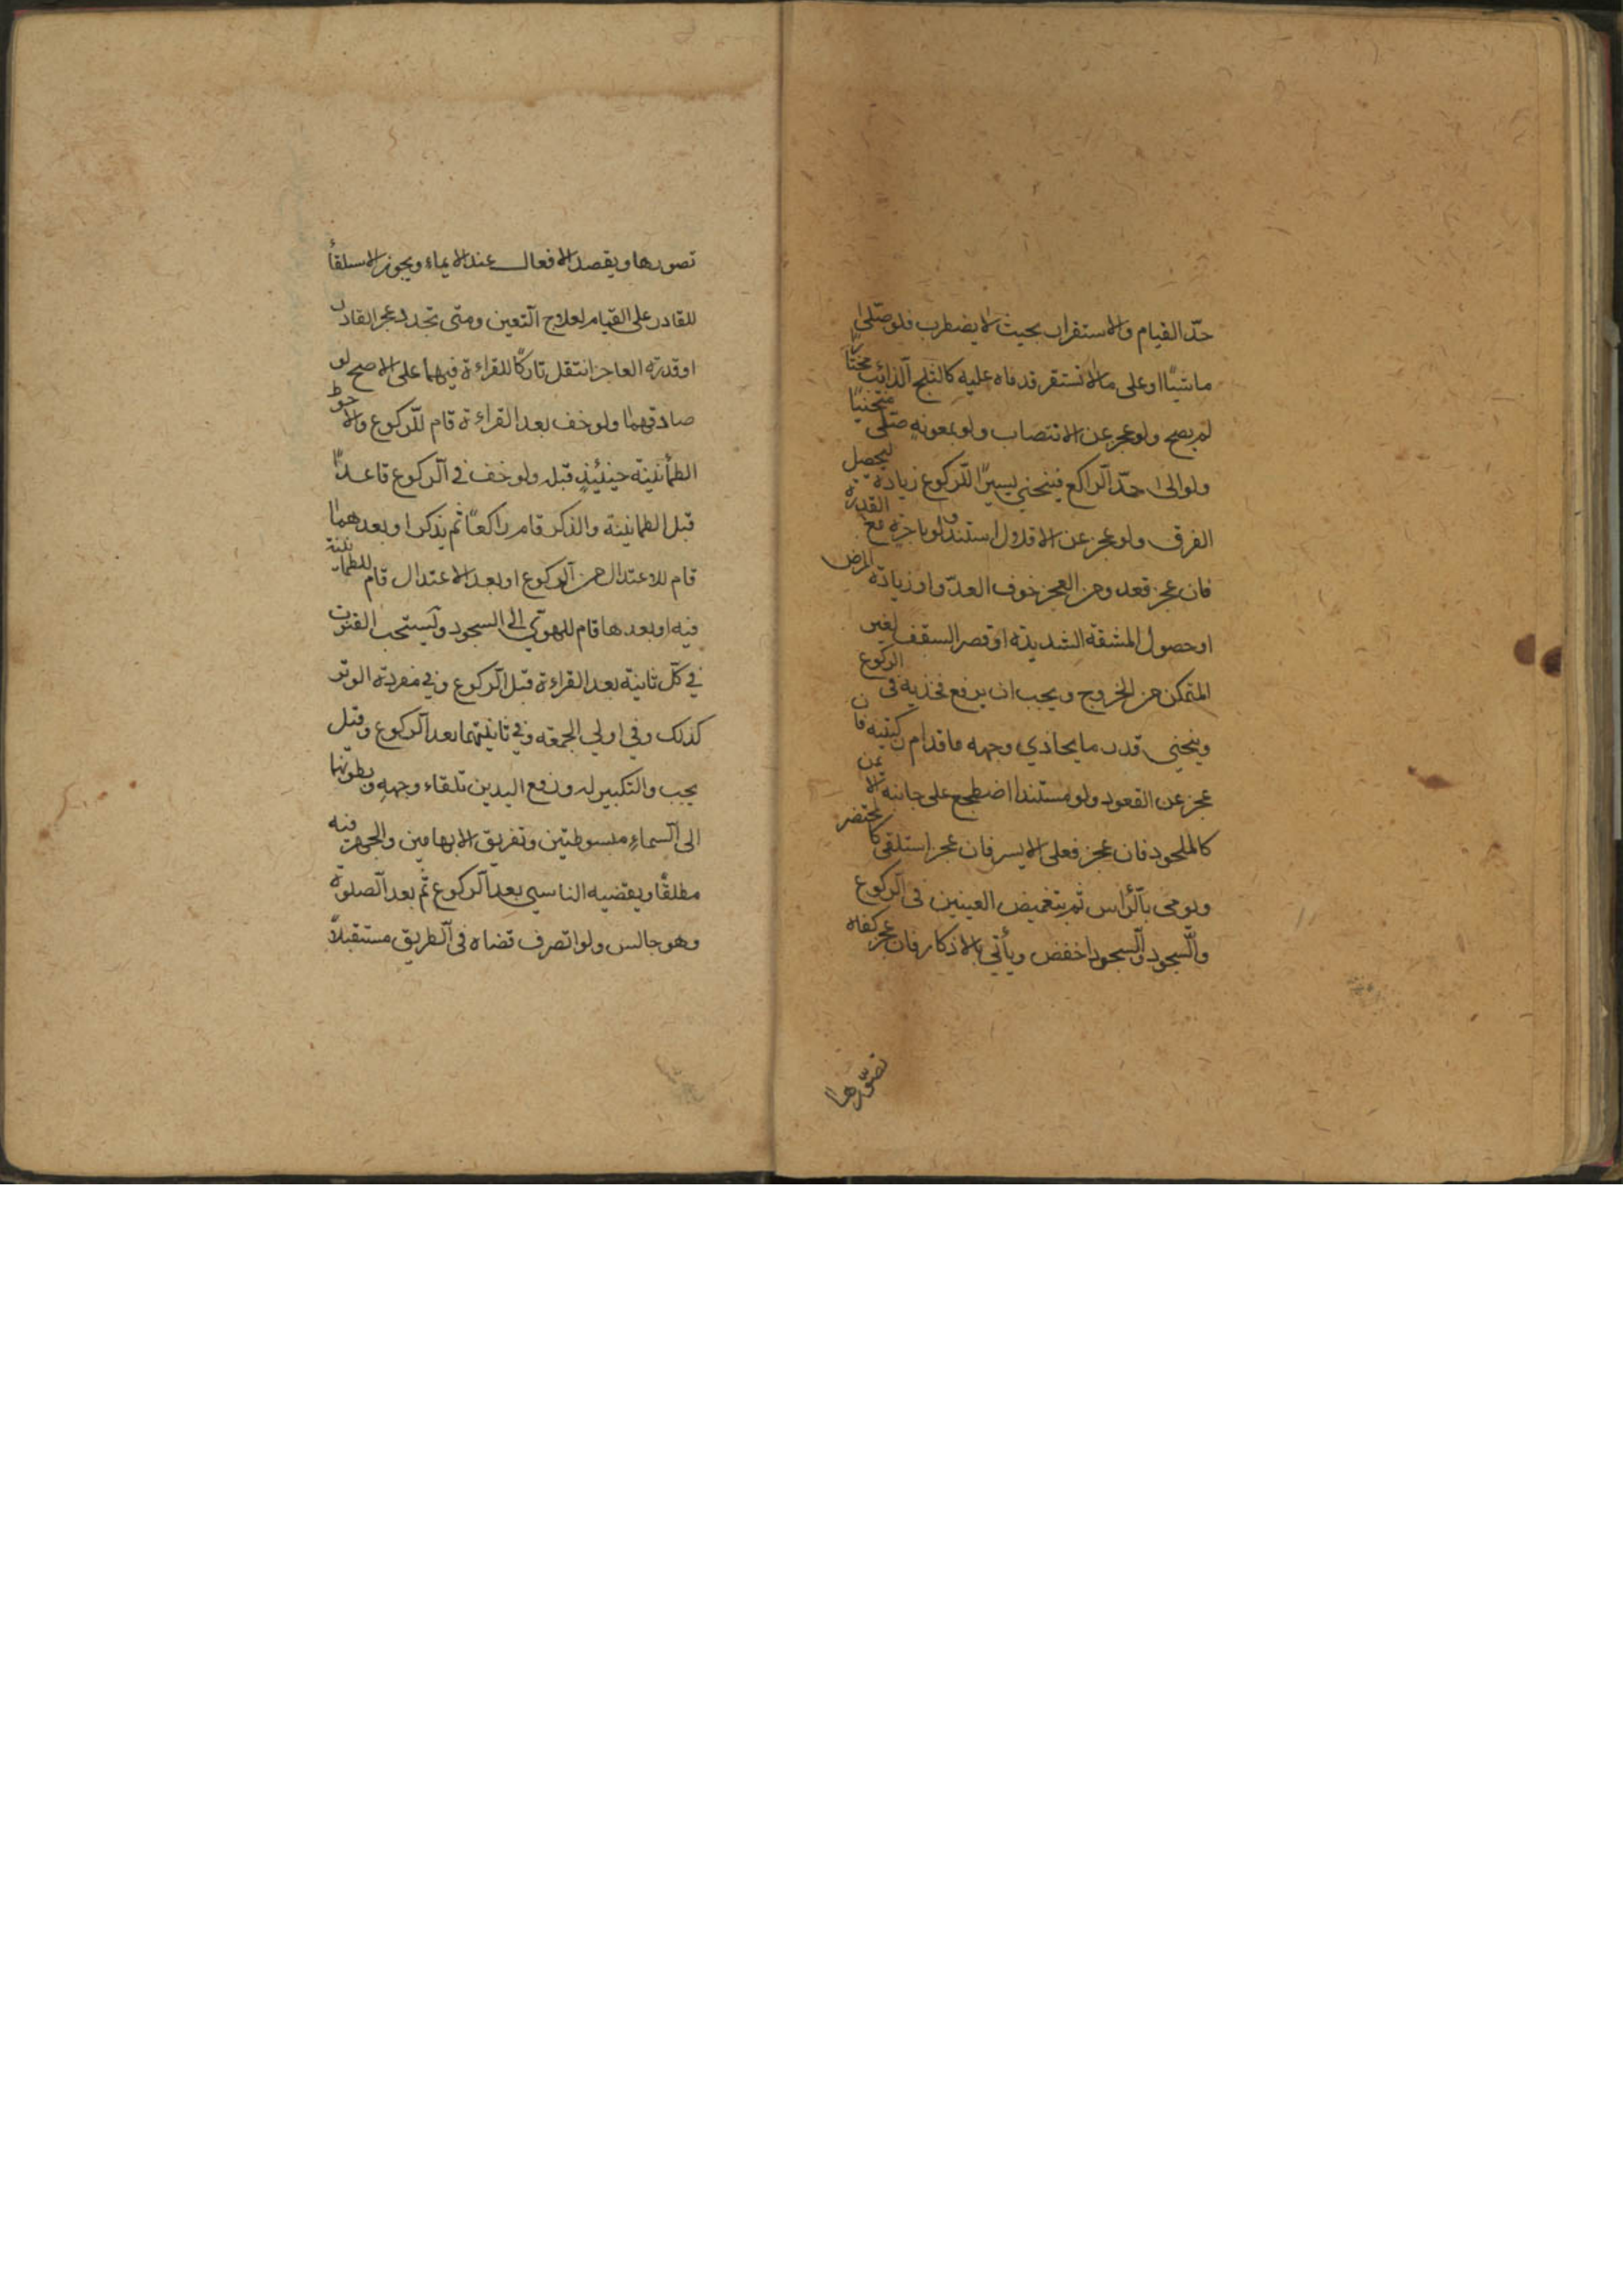 حدّ القيام والاستقرار بحيث لا يضطرب فلو صلى
ماشيًا او على ما لا تستقر قدماه عليه كالثلج الذائب مختارًا
لم يصح ولو عجز عن الانتصاب ولو بمعونه صلى منحنيًا
ولو الى حدّ الراكع فينحني يسيرًا للركوع زيادة ليحصل
الفرق ولو عجز عن الاقلال استند ولو باجرة مع القدرة
فان عجز قعد ومن العجز خوف العدّو او زيادة المرض
او حصول المشقة الشديدة او قصر السقف لغير
المتمكن من الخروج ويجب ان يرفع فخذيه في الركوع
وينحني قدر ما يحاذي وجهه ما قدام ركبتيه فان
عجز عن القعود ولو مستندا اضطجع على جانبه الايمن
كالملحود فان عجز فعلى الايسر فان عجز استلقى كالمحتضر
ويومى بالرأس ثم بتغميض العينين في الركوع
والسجود والسجود اخفض ويأتي بالاذكار فان عجز كفاه
تصوّرها
تصورها ويقصد الافعال عند الايماء ويجوز الاستلقأ
للقادر على القيام لعلاج العين ومتى تجدد عجز القادر
او قدرة العاجز انتقل تاركًا للقراءة فيهما على الاصح لو
صادفهما ولو خف بعد القراءة قام للركوع والاحوط
الطمأنينة حينئيذٍ قبله ولو خف في الركوع قاعدًا
قبل الطمانينة والذكر قام راكعًا ثم يذكر او بعدهما
قام للاعتدال من الركوع او بعد الاعتدال قام للطمانينة
فيه او بعدها قام للهوّي الى السجود ويستحب القنوت
في كل ثانية بعد القراءة قبل الركوع وفي مفردة الوتر
كذلك وفي اولي الجمعه وفي ثانيتهما بعد الركوع وقيل
يجب والتكبير له ورفع اليدين تلقاء وجهه وبطونهما
الى السماء مبسوطتين وتفريق الابهامين والجهر فيه
مطلقًا ويقضيه الناسي بعد الركوع ثم بعد الصلوة
وهو جالس ولو انصرف قضاه في الطريق مستقبلاً